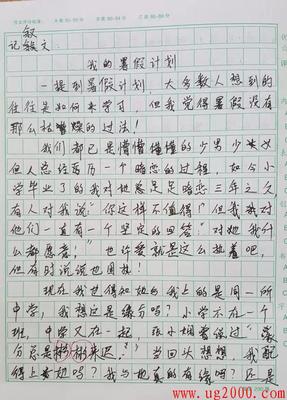 叙
记敘文：
我的暑假计划
一提到暑假计划，大多数人想到的
往往是如何来学习，但我觉得暑假没有
那么枯燥的过法！
我们都已是懵懵懂懂的少男少女
但人总经历一个暗恋的过程，如今小
学毕业了的我对她足足暗恋三年之久
有人对我说"你这样不值得！"但我对
他们一直有一个坚定的回答"对她我什
么都愿意！"也许爱就是这么执着吧，
但有时说说也困扰！
现在我也得知她与我上的是同一所
中学，我想这是缘分吗？小学不在一个
班，中学又在一起，张小娴曾说过"缘
分总是姗姗来迟。"当回头想想，我配
得上她吗？我与她真的有缘吗？还是
www.ug2000.com